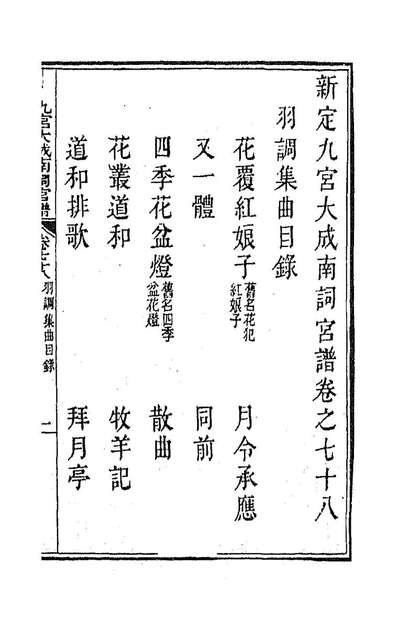 新定九宮大成南詞宮譜卷之七十八
羽調集曲目錄
花覆紅娘子 舊名花犯紅娘子 月令承應
又一體 同前
四季花盆燈 舊名四季盆花燈 散曲
花叢道和 牧羊記
道和排歌 拜月亭
九宮大成南詞宮譜 卷七十八 羽調集曲目錄 二